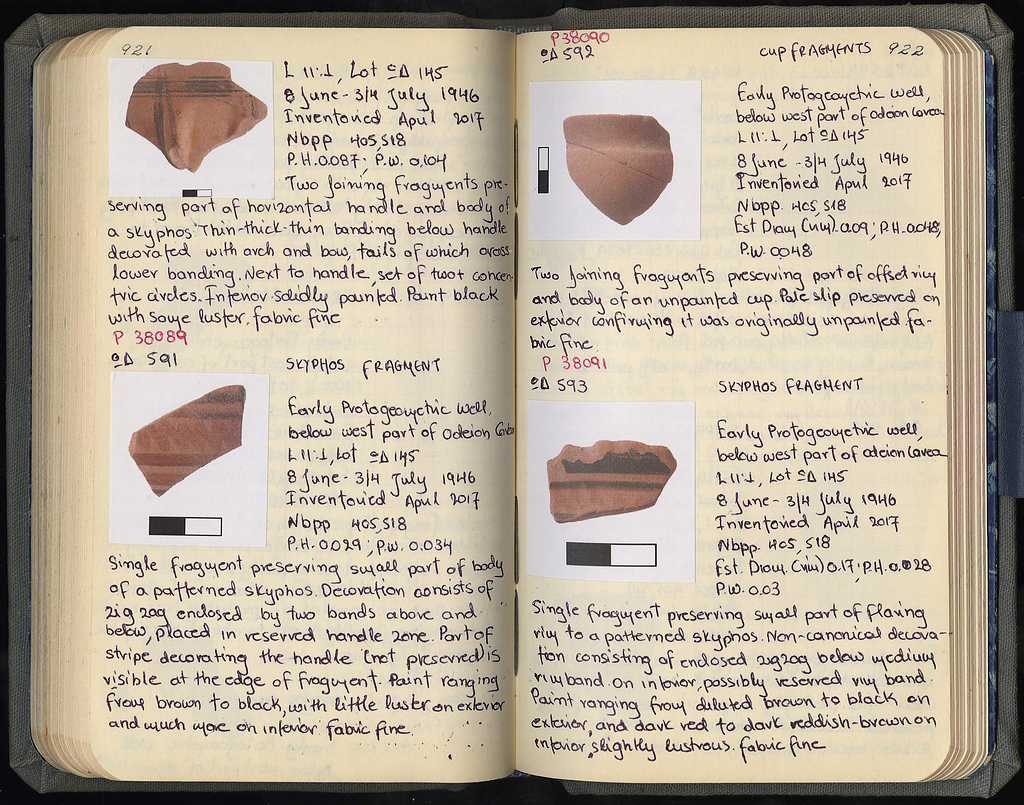 921
L 11:1, Lot ΩΔ 145
8 June - 3/4 July 1946
Inventoried April 2017
Nbpp 405, 518
P.H. 0.087; P.W. 0.104
Two joining fragments pre-
serving part of horizontal handle and body of
a skyphos. Thin-thick-thin banding below handle
decorated with arch and bow, tails of which cross
lower banding. Next to handle, set of two+ concen-
tric circles. Interior solidly painted. Paint black
with some luster. Fabric fine
P 38089
ΩΔ 591
SKYPHOS FRAGMENT
Early Protogeometric well,
below west part of Odeion Cavea
L 11:1, Lot ΩΔ 145
8 June - 3/4 July 1946
Inventoried April 2017
Nbpp 405, 518
P.H. 0.029; P.W. 0.034
Single fragment preserving small part of body
of a patterned skyphos. Decoration consists of
zigzag enclosed by two bands above and
below, placed in reserved handle zone. Part of
stripe decorating the handle (not preserved) is
visible at the edge of fragment. Paint ranging
from brown to black, with little luster on exterior
and much more on interior. Fabric fine.
P 38090
ΩΔ 592
CUP FRAGMENTS
922
Early Protogeometric well,
below west part of Odeion Cavea
L 11:1, Lot ΩΔ 145
8 June - 3/4 July 1946
Inventoried April 2017
Nbpp. 405, 518
Est Diam (rim) 0.09; P.H. 0.048,
P.W. 0.048
Two joining fragments preserving part of offset rim
and body of an unpainted cup. Pale slip preserved on
exterior confirming it was originally unpainted. Fa-
bric fine.
P 38091
ΩΔ 593
SKYPHOS FRAGMENT
Early Protogeometric well,
below west part of Odeion Cavea
L 11:1, Lot ΩΔ 145
8 June - 3/4 July 1946
Inventoried April 2017
Nbpp. 405, 518
Est. Diam. (rim) 0.17; P.H. 0.028
P.W. 0.03
Single fragment preserving small part of flaring
rim to a patterned skyphos. Non-canonical decora-
tion consisting of enclosed zigzag below medium
rimband. On interior, possibly reserved rim band.
Paint ranging from diluted brown to black on
exterior, and dark red to dark reddish-brown on
interior, slightly lustrous. Fabric fine